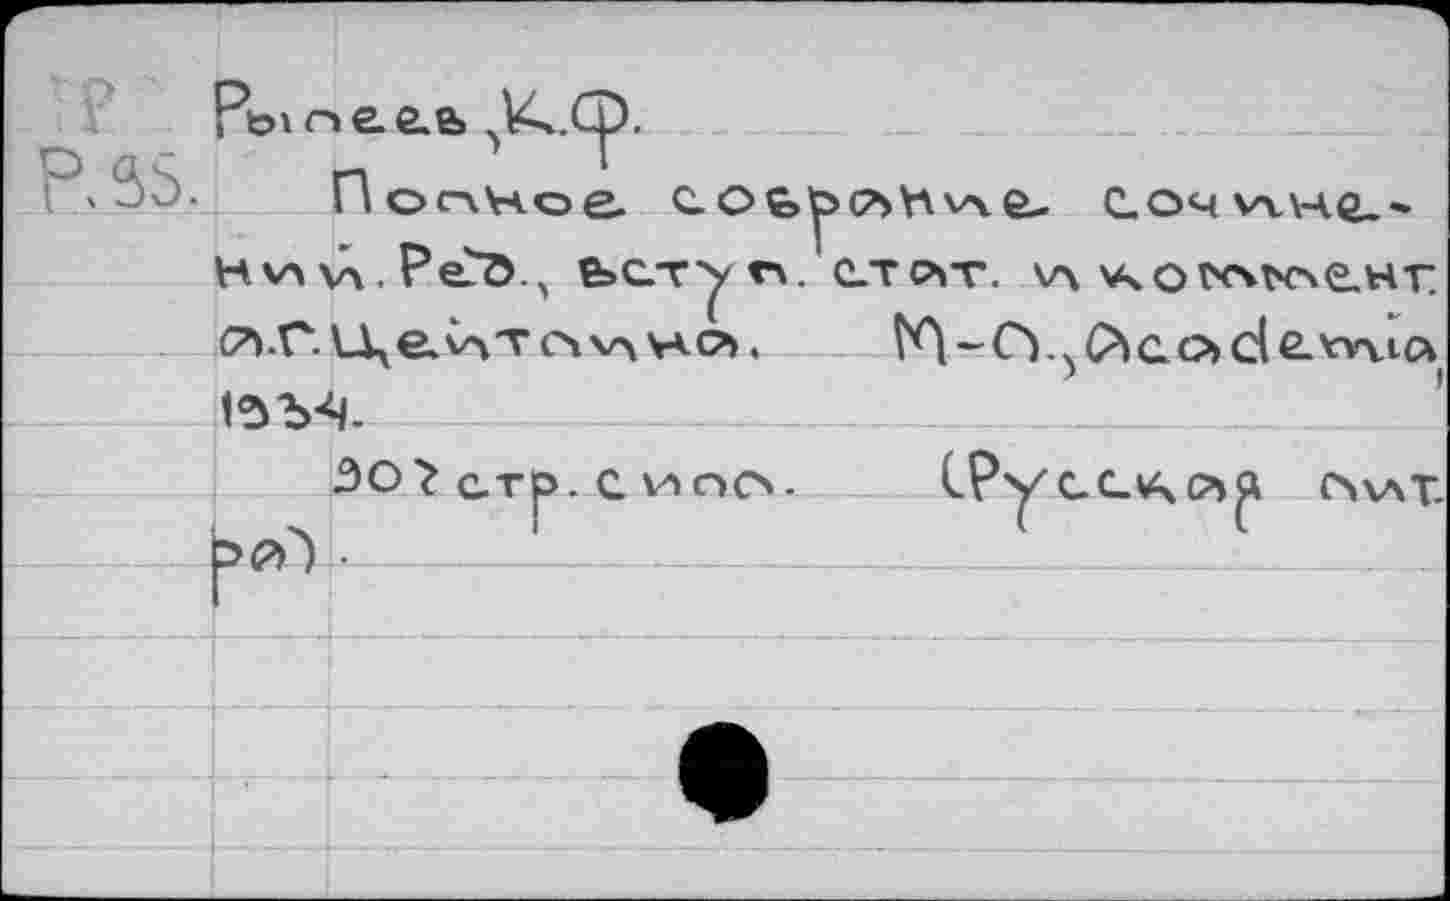 Р Рылеев, К.Ф.
Р.95. Полное собрание сочине-
ний. Ред., вступ. стат. и коммент.
А.Г. Цейтлина. М-Л., Academia,
1934.
907 стр. с илл. (Русская лит.
ра).